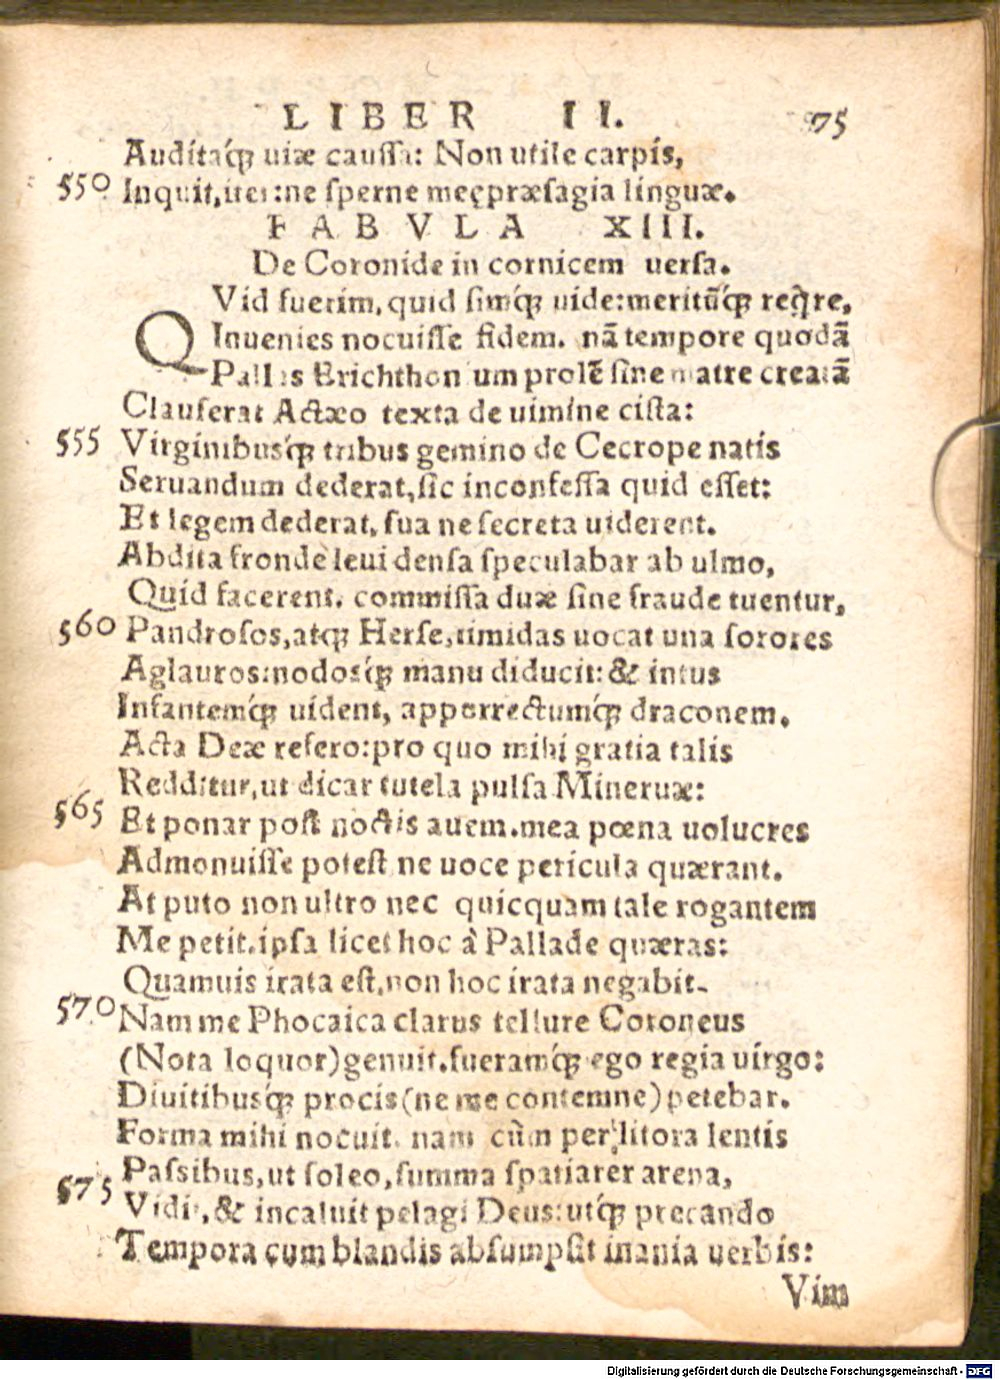 LIBER II. 75
Auditaq́; uiæ caussa: Non utile carpis,
550 Inquit, iter: ne sperne meę præsagia linguæ.
FABVLA XIII.
De Coronide in cornicem uersa.
QVid fuerim, quid simq́; uide: meritũq́; reqre,
Inuenies nocuisse fidem. nã tempore quodã
Pallas Erichthonium prolẽ sine matre creatã
Clauserat Actæo texta de uimine cista:
555 Virginibusq́; tribus gemino de Cecrope natis
Seruandum dederat, sic inconfessa quid esset:
Et legem dederat, sua ne secreta uiderent.
Abdita fronde leui densa speculabar ab ulmo,
Quid facerent. commissa duæ sine fraude tuentur,
560 Pandrosos, atq; Herse, timidas uocat una sorores
Aglauros: nodosq́; manu diducit: & intus
Infantemq́; uident, apporrectumq́; draconem.
Acta Deæ refero: pro quo mihi gratia talis
Redditur, ut dicar tutela pulsa Mineruæ:
565 Et ponar post noctis auem. mea pœna uolucres
Admonuisse potest ne uoce pericula quærant.
At puto non ultro nec quicquam tale rogantem
Me petit. ipsa licet hoc à Pallade quæras:
Quamuis irata est, non hoc irata negabit.
570 Nam me Phocaica clarus tellure Coroneus
(Nota loquor) genuit. fueramq́; ego regia uirgo:
Diuitibusq́; procis (ne me contemne) petebar.
Forma mihi nocuit. nam cùm per litora lentis
Passibus, ut soleo, summa spatiarer arena,
575 Vidit, & incaluit pelagi Deus: utq́; precando
Tempora cum blandis absumpsit inania uerbis:
Vim
Digitalisierung gefördert durch die Deutsche Forschungsgemeinschaft - DFG